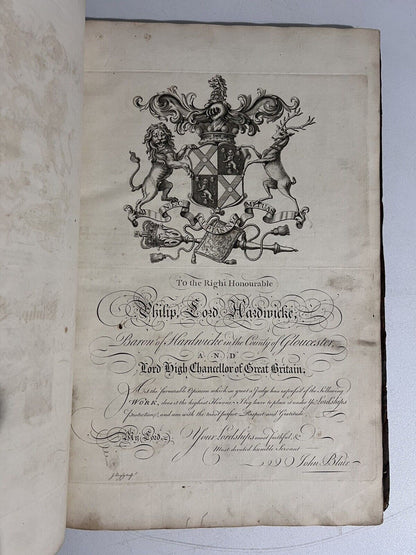 To the Right Honourable
Philip, Lord Hardwicke,
Baron of Hardwicke in the County of Gloucester,
AND
Lord High Chancellor of Great Britain.
the favourable Opinion which so great a Judge has express'd of the following
WORK, does it the highest Honour, I beg leave to place it under Yr. Lordship's
Protection; and am with the most perfect Respect and Gratitude,
My Lord,
Your Lordship's most faithful &
Most devoted humble Servant
John Blair